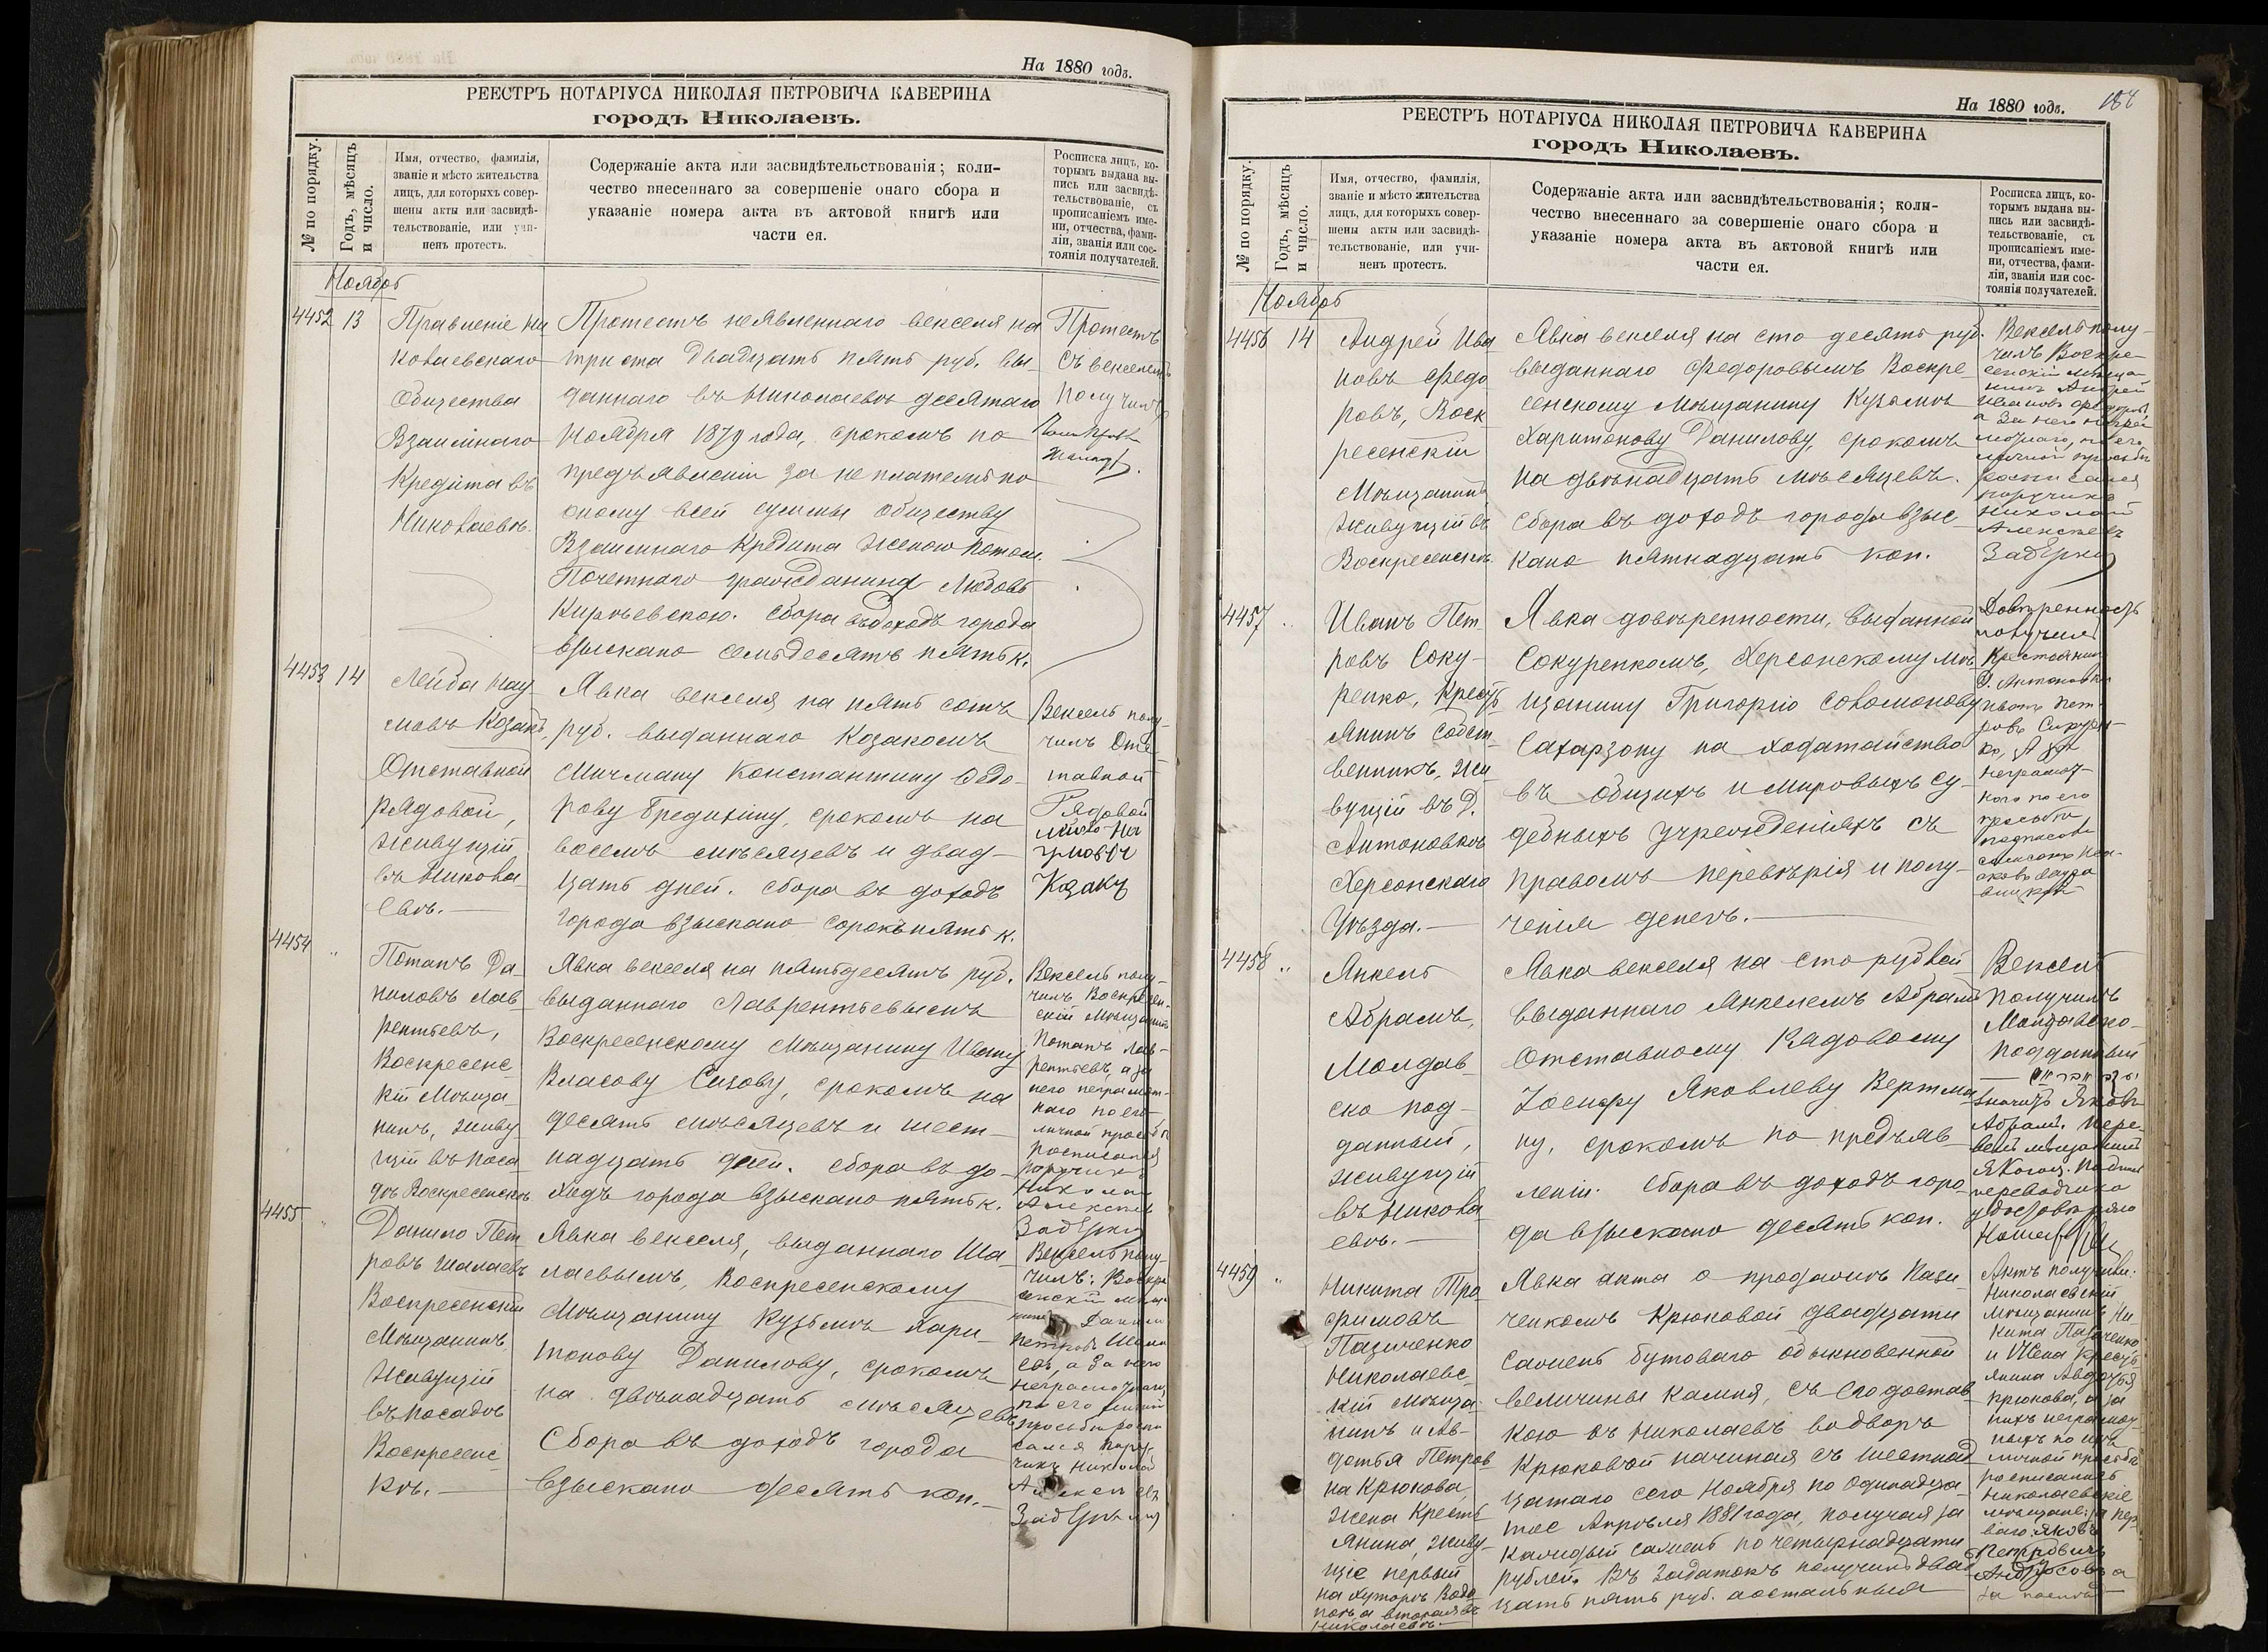 На 1880 годъ.
РЕЕСТРЪ НОТАРІУСА НИКОЛАЯ ПЕТРОВИЧА КАВЕРИНА
городъ Николаевъ.
№ по порядку.
Годъ, мѣсяцъ
и число.
Имя, отчество, фамилія,
званіе и мѣсто жительства
лицъ, для которыхъ совер-
шены акты или засвидѣ-
тельствованіе, или учи-
ненъ протестъ.
Содержаніе акта или засвидѣтельствованія; коли-
чество внесеннаго за совершеніе онаго сбора и
указаніе номера акта въ актовой книгѣ или
части ея.
Росписка лицъ, ко-
торымъ выдана вы-
пись или засвидѣ-
тельствованіе, съ
прописаніемъ име-
ни, отчества, фами-
ліи, званія или сос-
тоянія получателей.
Ноябрь
4452
13
Правленіе Ни
колаевскаго
Общества
Взаимнаго
Кредита въ
Николаевѣ.
Протестъ неявленнаго векселя на
триста двадцать пять руб. вы-
даннаго въ Николаевѣ десятаго
Ноября 1879 года, срокомъ по
предъявленіи за неплатежъ по
оному всей суммы Обществу
Взаимнаго Кредита женою потом.
Почетнаго гражданина Любовь
Кирѣевскою. Сбора въ доходъ города
взыскано семьдесятъ пять к.
Протестъ
съ векселемъ
получилъ
4453
14
Лейба Нау
мовъ Козакъ,
Отставной
рядовой,
живущій
въ Никола
евѣ.—
Явка векселя на пять сотъ
руб. выданнаго Козакомъ
Мичману Константину Федо-
рову Бредихину, срокомъ на
восемь мѣсяцевъ и двад-
цать дней. Сбора въ доходъ
города взыскано сорокъ пять к.
Вексель полу-
чилъ Отс
тавной
Рядовой
Козакъ
4454
"
Потапъ Да-
ниловъ Лав
рентьевъ,
Воскресенс-
кій Мѣща
нинъ, живу
щій въ поса
дѣ Воскресенскѣ
Явка векселя на пятьдесятъ руб.
выданнаго Лаврентьевымъ
Воскресенскому Мѣщанину Ивану
Власову Сизову, срокомъ на
десять мѣсяцевъ и шест-
надцать дней. Сбора въ до-
ходъ города взыскано пять к.
Вексель полу-
чилъ Воскресен-
скій Мѣщанинъ
Потапъ Лав-
рентьевъ, а за
него неграмот-
наго по его
личной просьбѣ
росписался
поручикъ
Николай
Алексѣевъ
4455
"
Данило Пет
ровъ Шалаевъ
Воскресенскій
Мѣщанинъ,
живущій
въ посадѣ
Воскресенс-
кѣ.—
Явка векселя, выданнаго Ша-
лаевымъ, Воскресенскому
Мѣщанину Кузьмѣ Хари-
тонову Данилову, срокомъ
на двѣнадцать мѣсяцевъ
Сбора въ доходъ города
взыскано десять коп.—
Вексель полу-
чилъ: Воскре
сенскій мѣща
нинъ Данило
Петровъ Шала
евъ, а за него
неграмотнаго
по его личной
просьбѣ роспи
сался пору-
чикъ Николай
Алексѣевъ
На 1880 годъ.
РЕЕСТРЪ НОТАРІУСА НИКОЛАЯ ПЕТРОВИЧА КАВЕРИНА
городъ Николаевъ.
№ по порядку.
Годъ, мѣсяцъ
и число.
Имя, отчество, фамилія,
званіе и мѣсто жительства
лицъ, для которыхъ совер-
шены акты или засвидѣ-
тельствованіе, или учи-
ненъ протестъ.
Содержаніе акта или засвидѣтельствованія; коли-
чество внесеннаго за совершеніе онаго сбора и
указаніе номера акта въ актовой книгѣ или
части ея.
Росписка лицъ, ко-
торымъ выдана вы-
пись или засвидѣ-
тельствованіе, съ
прописаніемъ име-
ни, отчества, фами-
ліи, званія или сос-
тоянія получателей.
Ноябрь
4456
14
Андрей Ива
новъ Федо
ровъ, Воск
ресенскій
Мѣщанинъ
живущій въ
Воскресенскѣ
Явка векселя на сто десять руб.
выданнаго Федоровымъ Воскре-
сенскому Мѣщанину Кузьмѣ
Харитонову Данилову, срокомъ
на двѣнадцать мѣсяцевъ.
Сбора въ доходъ города взыс-
кано пятнадцать коп.
Вексель полу-
чилъ Воскре-
сенскій мѣща
нинъ Андрей
Ивановъ Федоровъ,
а за него негра
мотнаго, по его
личной просьбѣ
росписался
поручикъ
Николай
Алексѣевъ
4457
"
Иванъ Пет-
ровъ Соку-
ренко, крест
янинъ собст-
венникъ, жи
вущій въ Д.
Антоновкѣ
Херсонскаго
Уѣзда.—
Явка довѣренности, выданной
Сокуренкомъ, Херсонскому мѣ
щанину Григорію Соломонову
Сахарзону на ходатайство
въ общихъ и мировыхъ су-
дебныхъ учрежденіяхъ съ
правомъ передовѣрія и полу-
ченія денегъ.—
Довѣренность
получилъ
крестьянинъ
Д. Антоновки
Иванъ Пет-
ровъ Сокурен-
ко, а за
неграмот-
наго по его
просьбѣ
4458
"
Янкель
Абрамъ,
Молдав-
ско под-
данный,
живущій
въ Никола
евѣ.—
Явка векселя на сто рублей
выданнаго Янкелемъ Абрамъ
Отставному Рядовому
Іосифу Яковлеву Вертма
ну, срокомъ по предъяв-
леніи. Сбора въ доходъ горо-
да взыскано десять коп.
Вексель
получилъ
Молдавско-
подданный
4459
"
Никита Тро
фимовъ
Пазиченко
Николаевс-
кій мѣща-
нинъ и Ав-
дотья Петров
на Крюкова,
жена крест
янина, живу-
щіе первый
на хуторѣ Водо
поѣ а вторая въ
Николаевѣ.—
Явка акта о продажѣ Пази-
ченкомъ Крюковой двадцати
саженъ бутоваго обыкновенной
величины камня, съ его достав-
кою въ Николаевъ во дворъ
Крюковой начиная съ шестнад
цатаго сего Ноября по Одинадца-
тое Апрѣля 1881 года, получая за
каждый сажень по четырнадцати
рублей. Въ задатокъ получилъ двад
цать пять руб. а остальныя
Актъ получили:
Николаевскій
мѣщанинъ Ни
кита Пазиченко
и жена крест
янина Авдотья
Крюкова, а за
нихъ неграмот
ныхъ по ихъ
личной просьбѣ
росписались
Николаевскіе
мѣщане: за пер-
ваго: Яковъ
Петровичъ